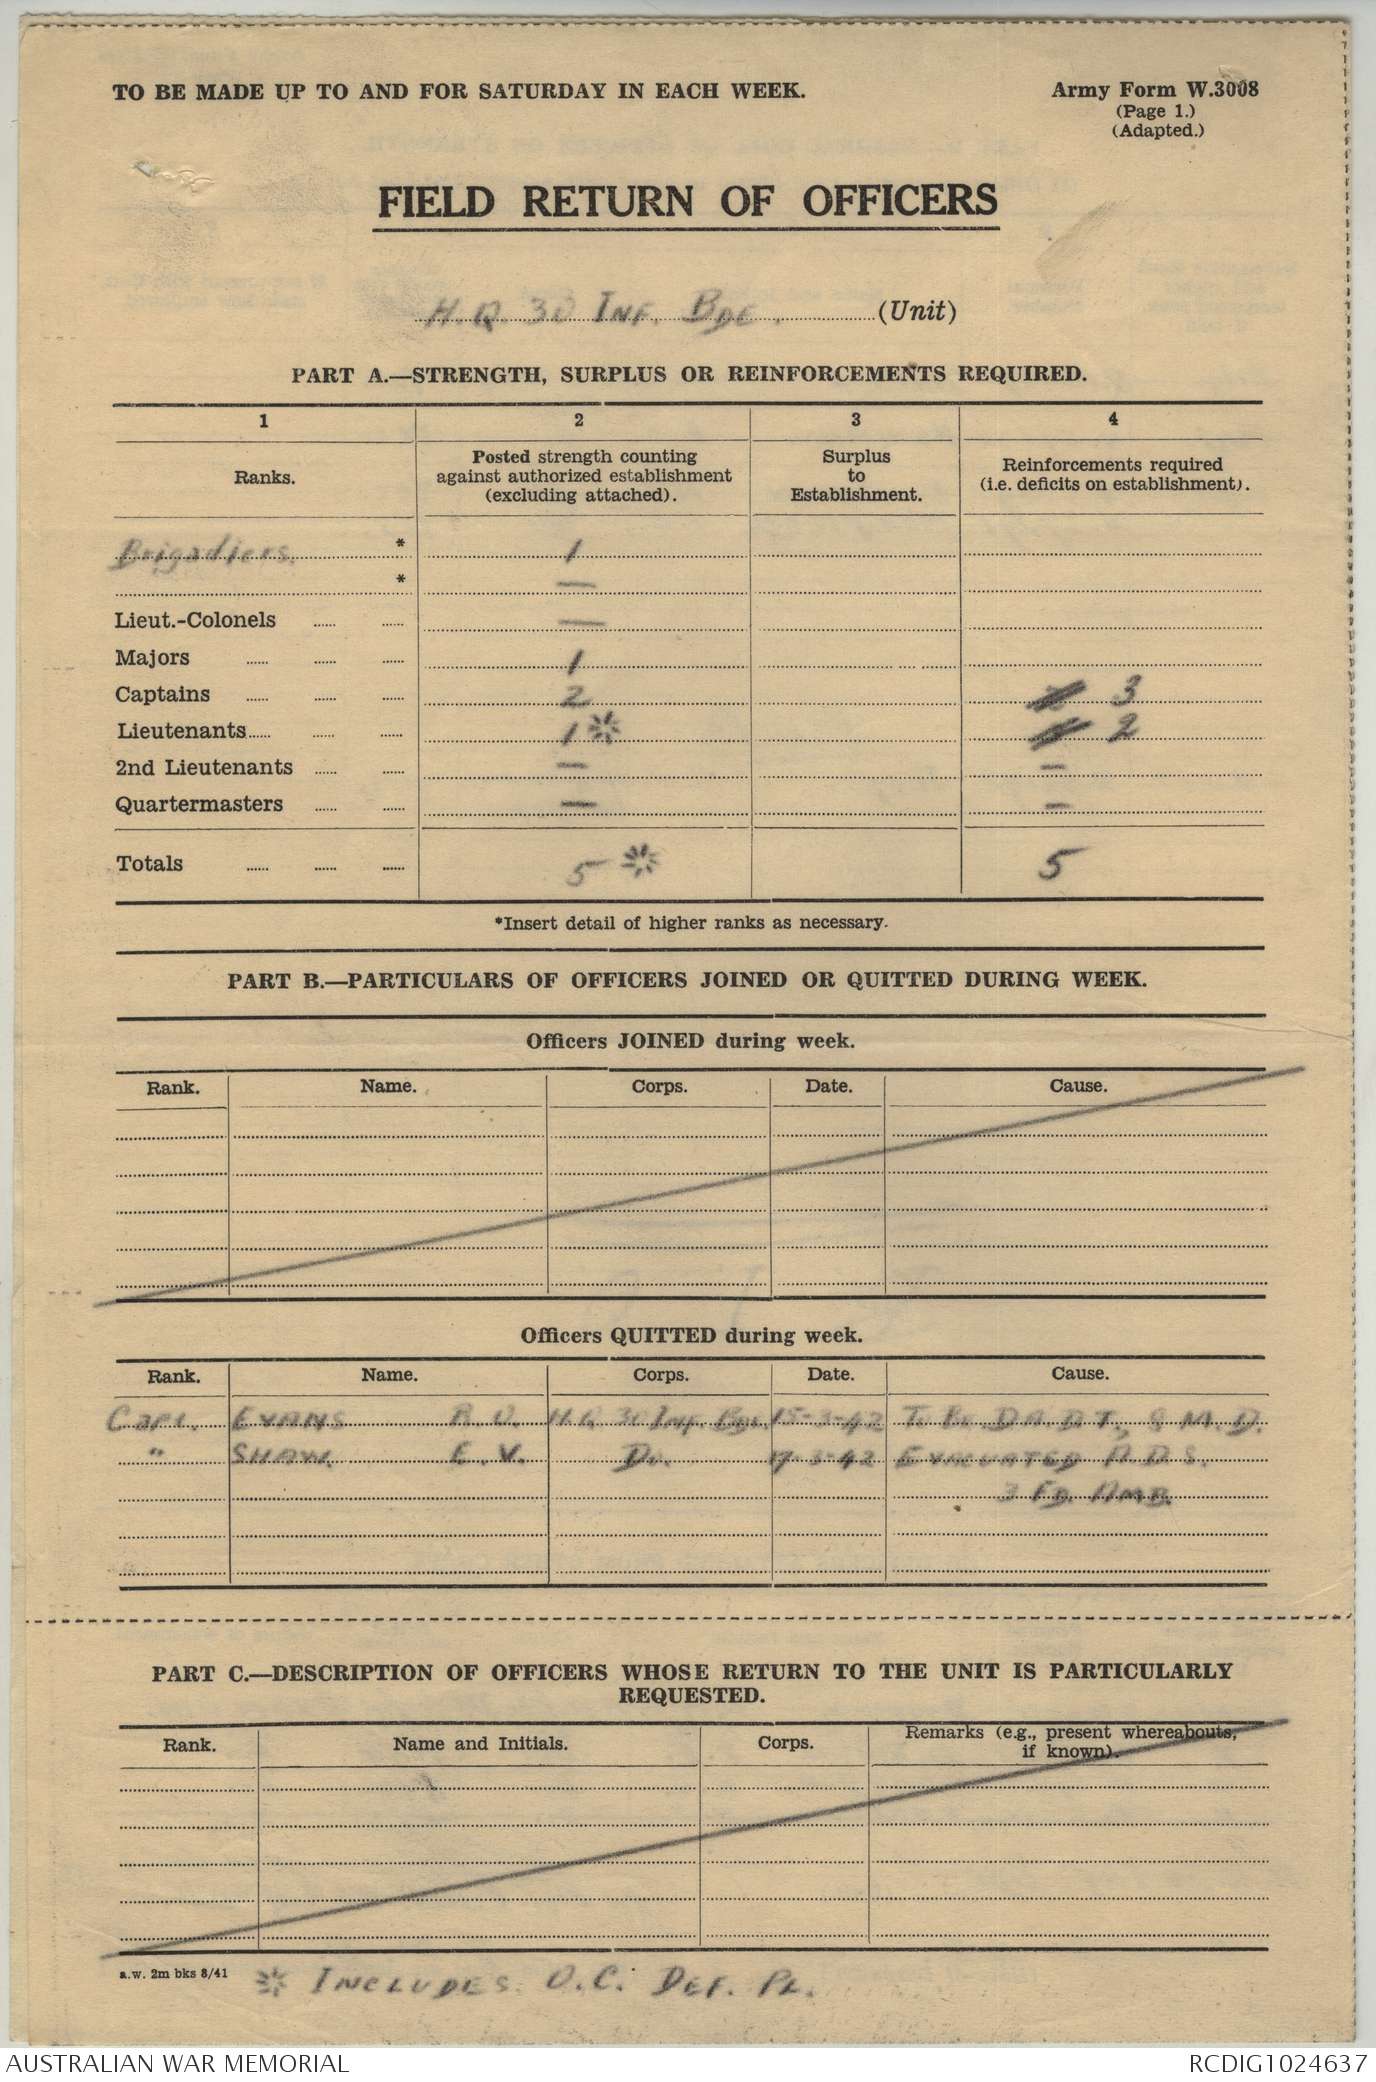 TO BE MADE UP TO AND FOR SATURDAY IN EACH WEEK.
Army Form W.3008
(Page 1.)
(Adapted.)
FIELD RETURN OF OFFICERS
H.Q. 30 INF. BDE. (Unit)
PART A.—STRENGTH, SURPLUS OR REINFORCEMENTS REQUIRED.
1 2 3 4
Ranks.
Posted strength counting against authorized establishment (excluding attached).
Surplus to Establishment.
Reinforcements required (i.e. deficits on establishment).
Brigadiers. * 1
* —
Lieut.-Colonels —
Majors 1
Captains 2 3
Lieutenants 1 * 2
2nd Lieutenants — —
Quartermasters — —
Totals 5 * 5
*Insert detail of higher ranks as necessary.
PART B.—PARTICULARS OF OFFICERS JOINED OR QUITTED DURING WEEK.
Officers JOINED during week.
Rank. Name. Corps. Date. Cause.
Officers QUITTED during week.
Rank. Name. Corps. Date. Cause.
Capt. EVANS H.Q 30 INF. BDE. 15-3-42 TO BE D.A.D.T., 8 M.D.
" SHAW. E.V. DO. 17-3-42 EVACUATED A.D.S.
3 FD. AMB.
PART C.—DESCRIPTION OF OFFICERS WHOSE RETURN TO THE UNIT IS PARTICULARLY
REQUESTED.
Rank. Name and Initials. Corps. Remarks (e.g., present whereabouts, if known).
a.w. 2m bks 8/41
* INCLUDES O.C. DEF. PL.
AUSTRALIAN WAR MEMORIAL
RCDIG1024637